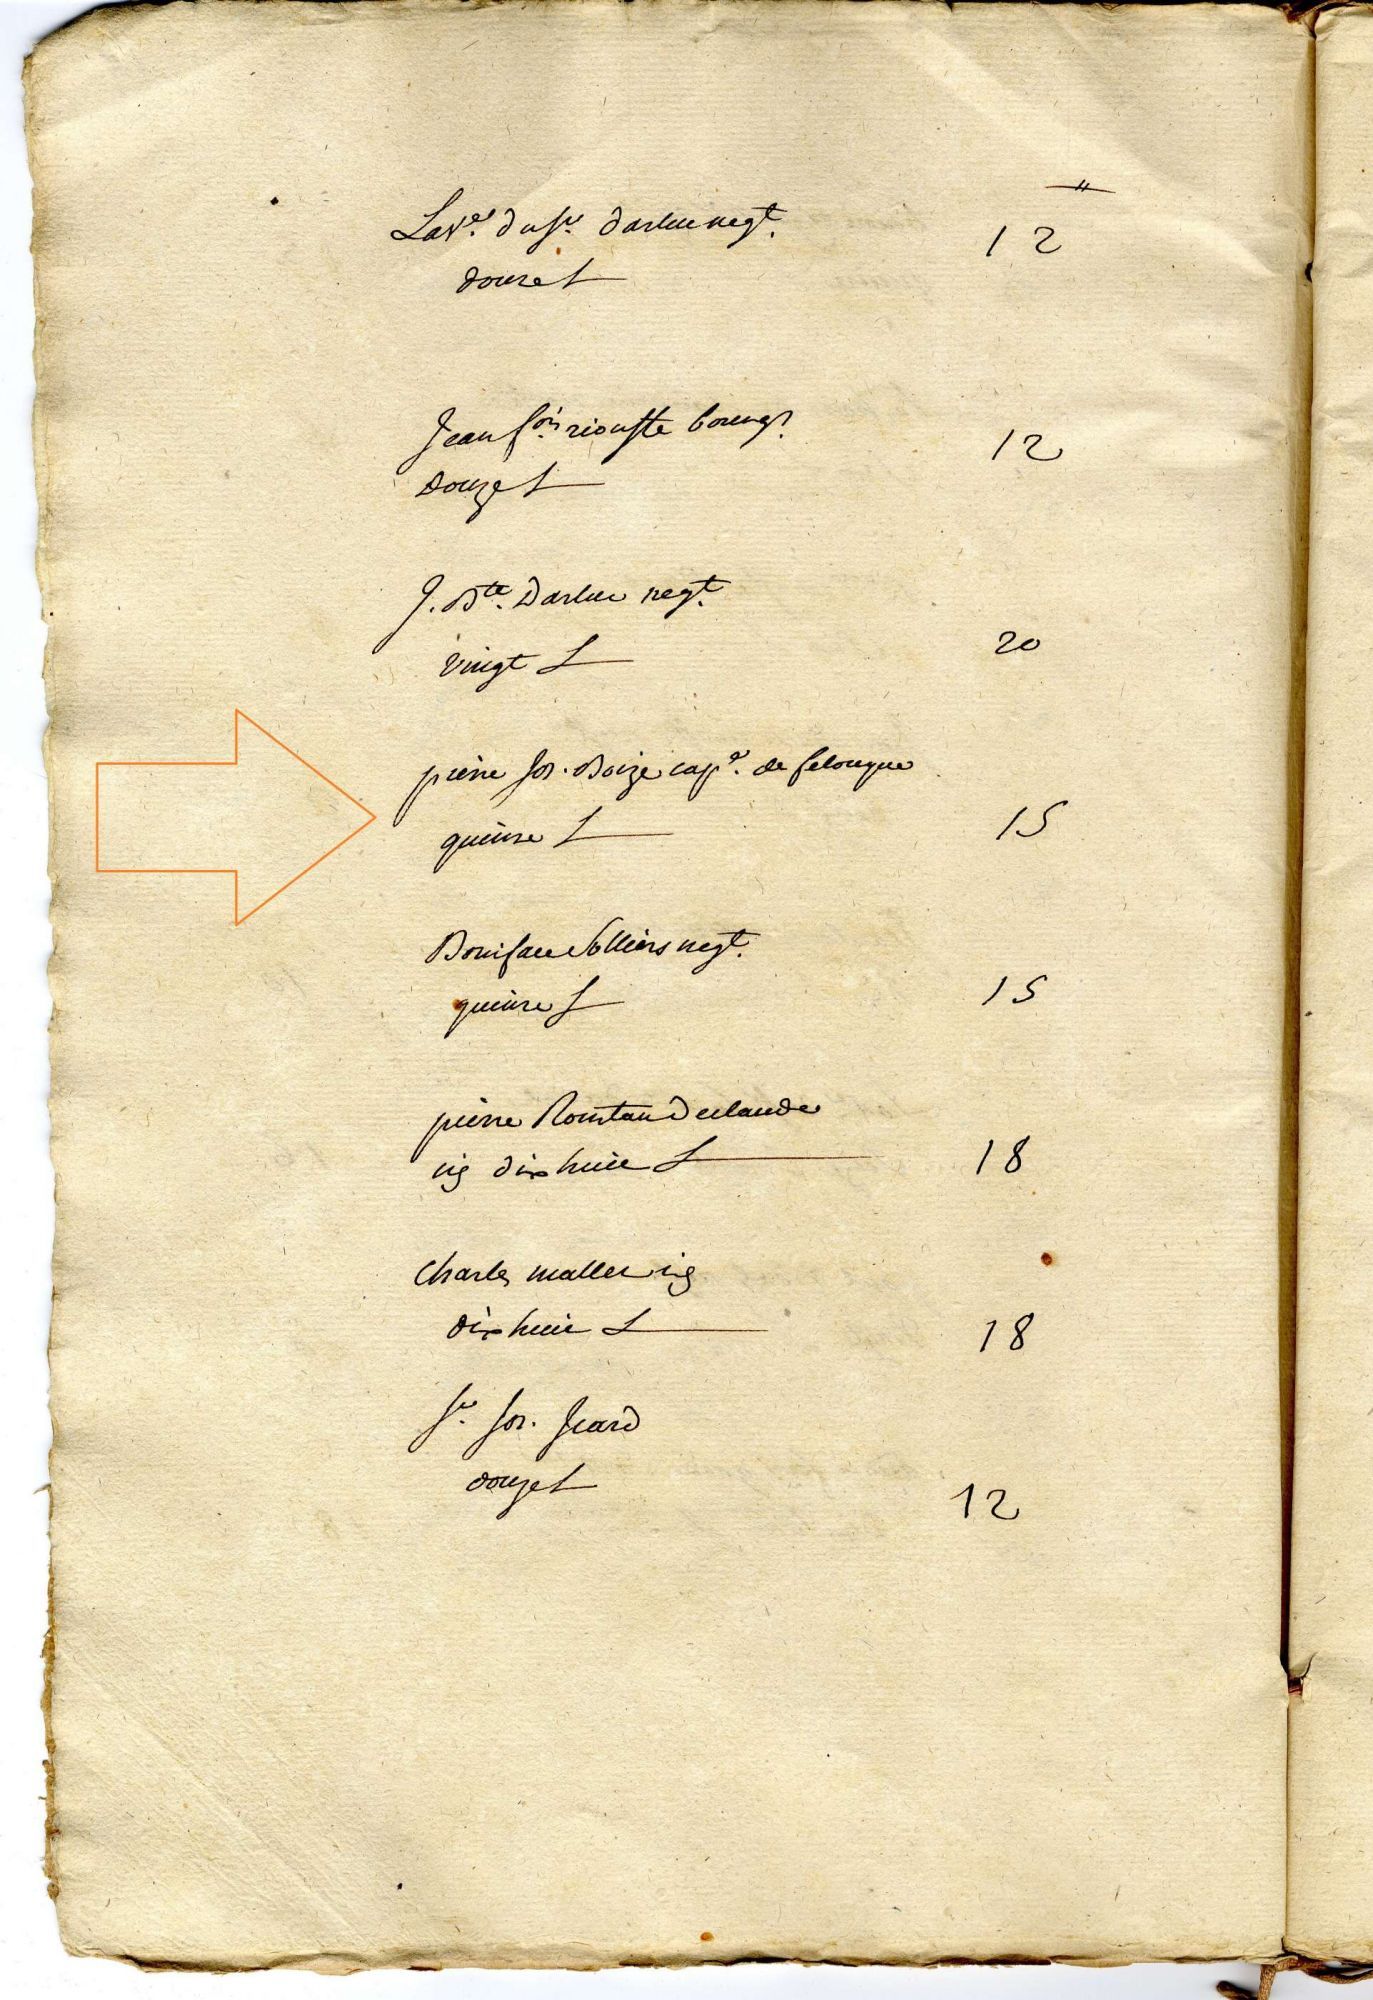 "
La Ve. du Sr. darluc negt. 12
douze L
Jean fois. riouffe bourg. 12
douze L
J. Bte. Darluc negt.
vingt L 20
pierre Jos. Boize cape. de felouque
quinze L 15
Boniface Solliers negt.
quinze L 15
pierre Rostan declaude
dix huit L 18
charles mallet
dix huit L 18
Sr. Jos. Icard
douze L 12